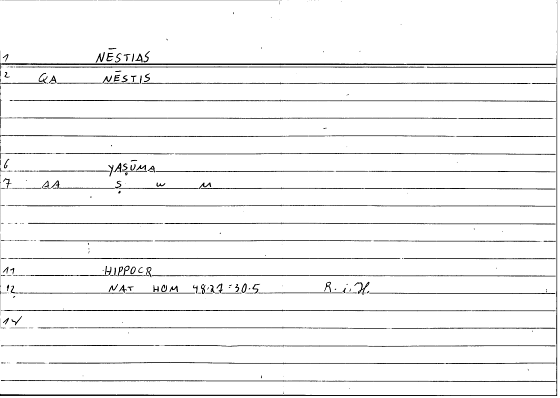 1 NĒSTIAS
2 QA NĒSTIS
6 YAṢŪMA
7 AA Ṣ W M
11 HIPPOCR
12 NAT HOM 48.27=30.5 R.i.H.
14